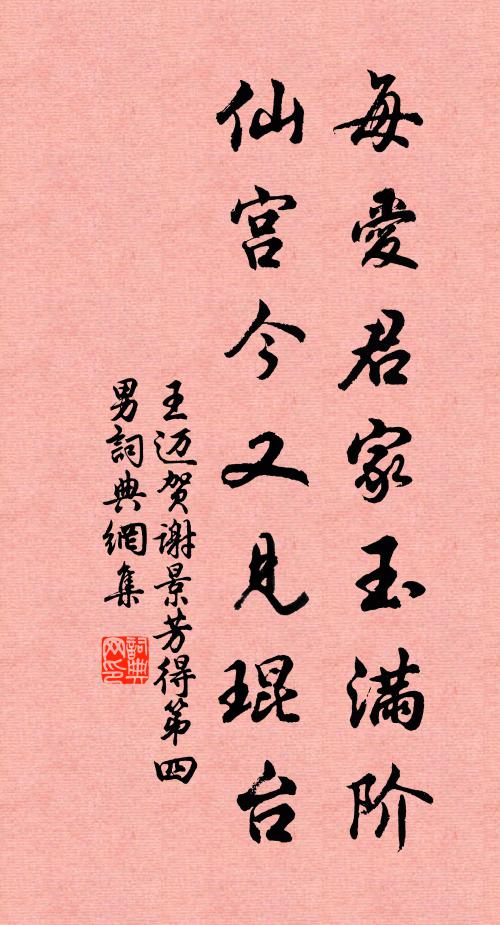 每愛君家玉滿阶
仙宫今又見琨台
王迈贺谢景芳得第四
男詞典網集
詞典网印